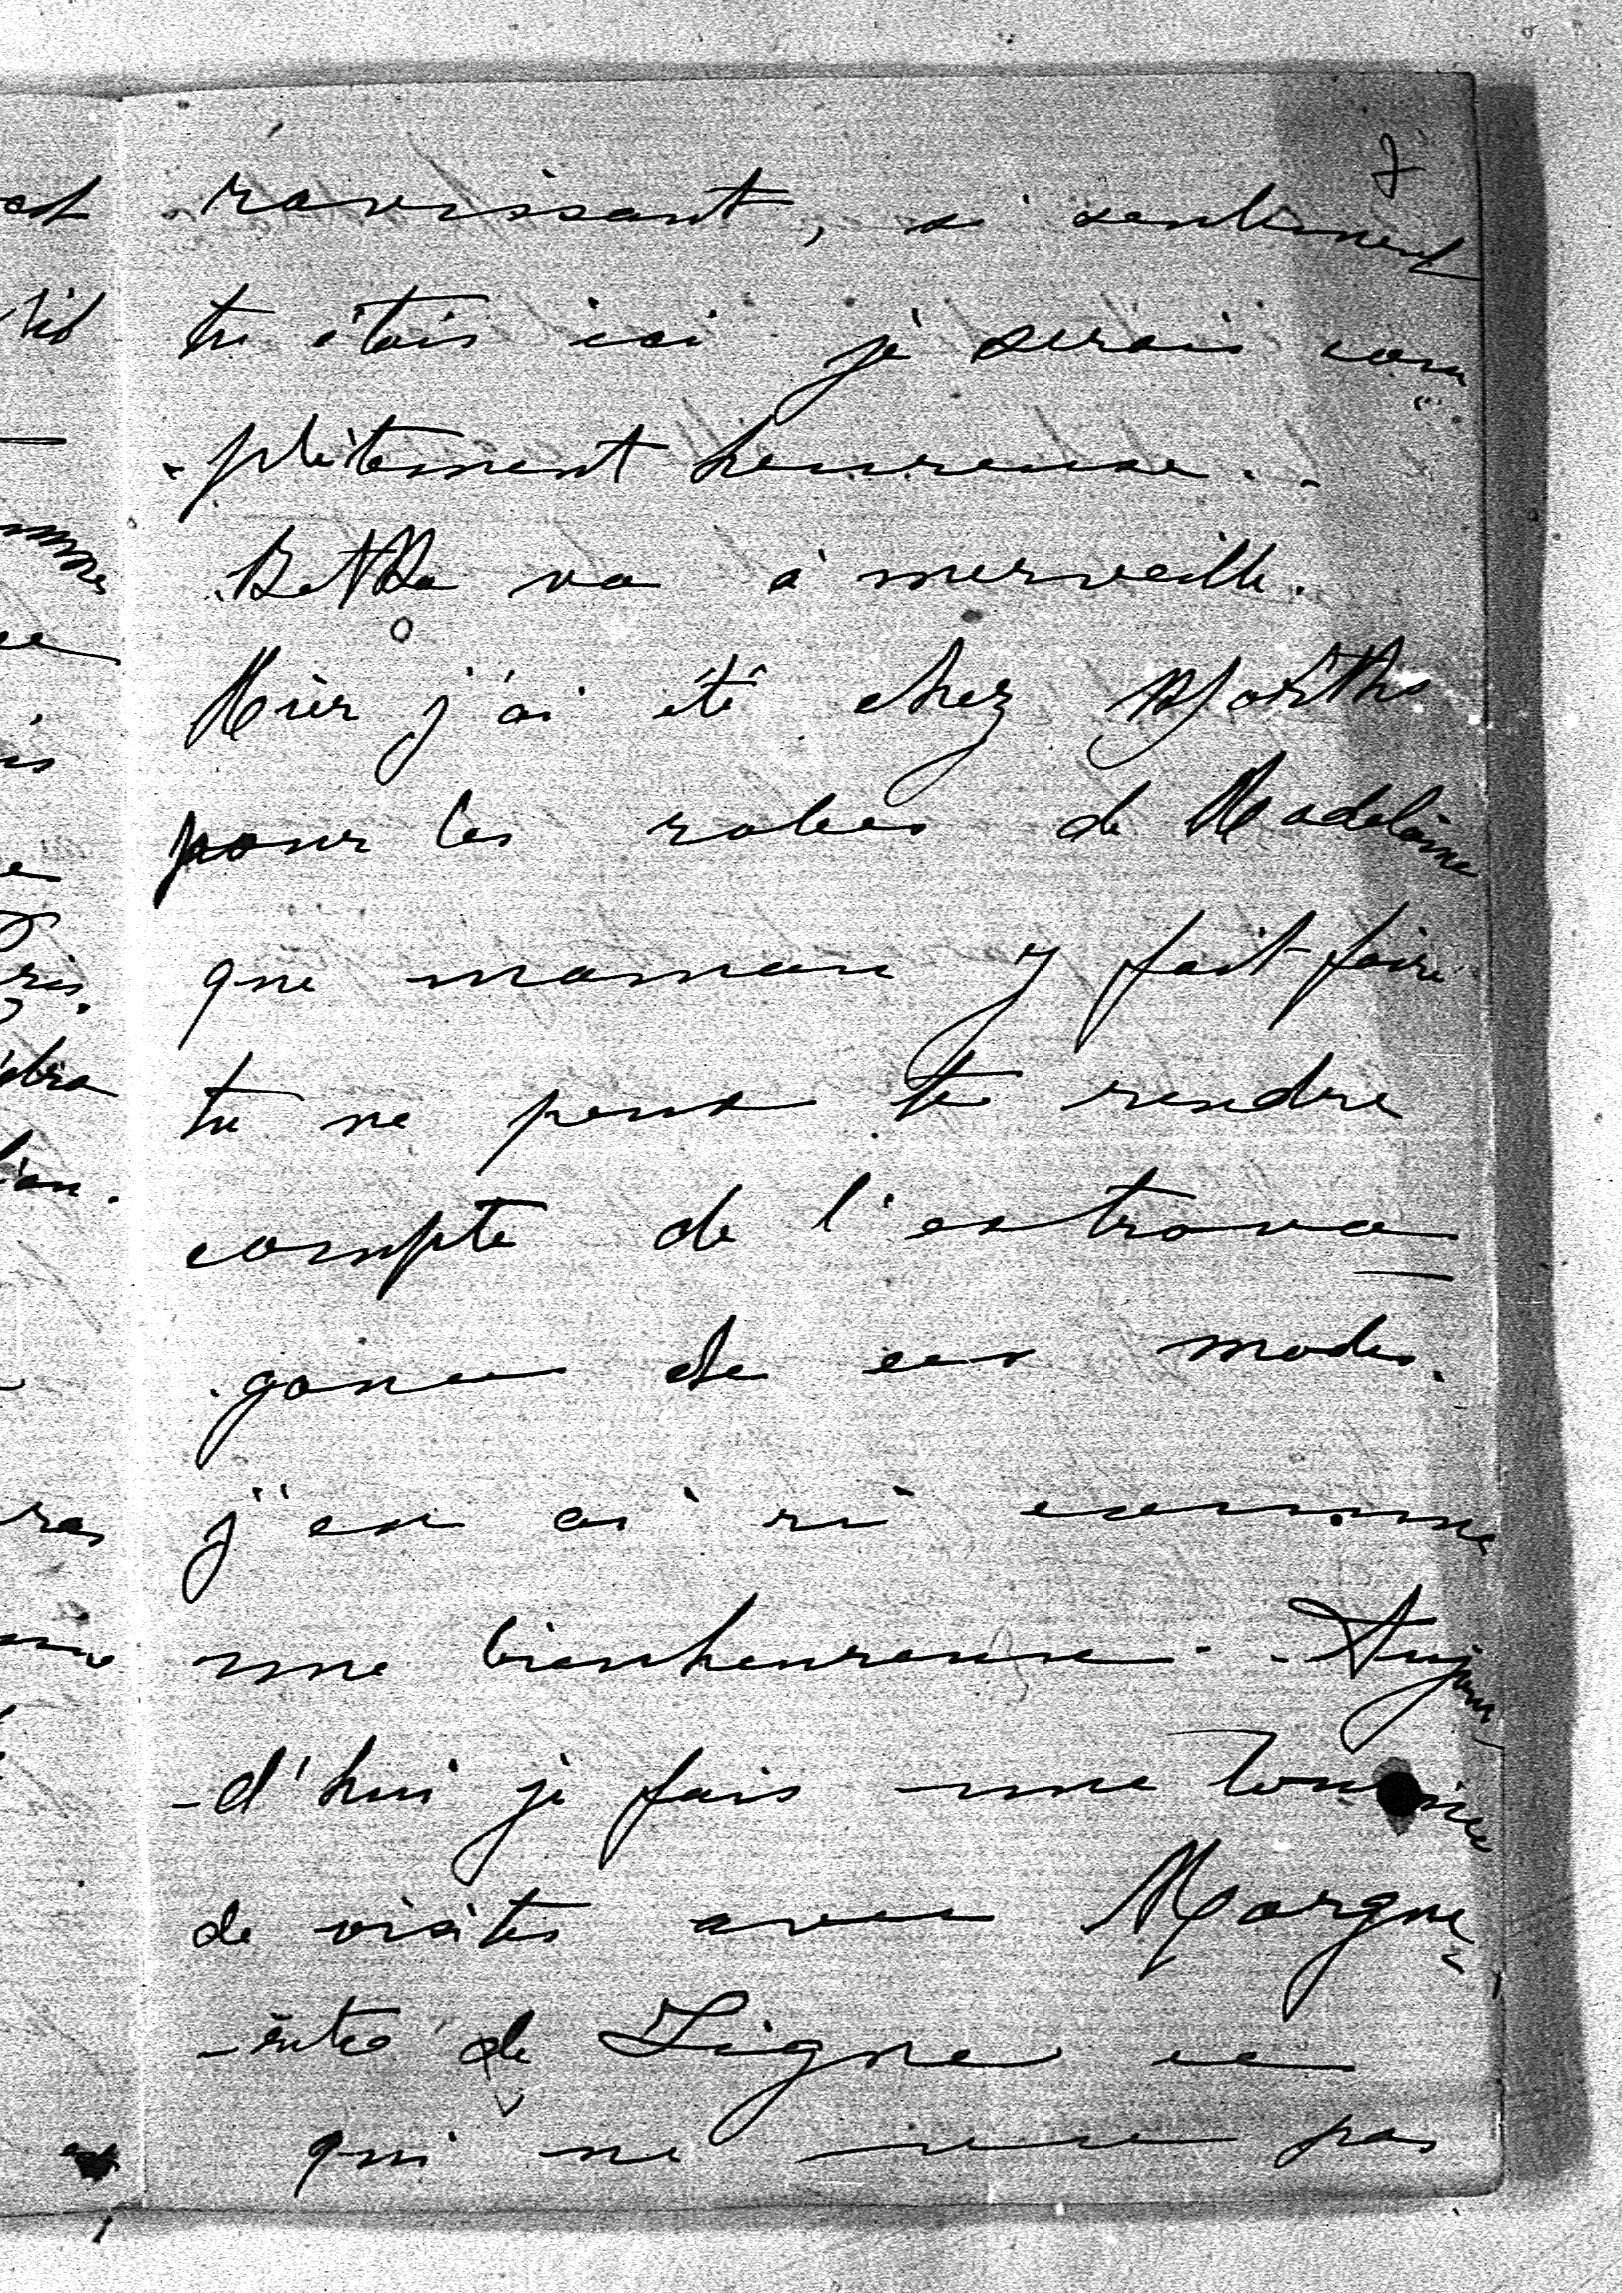 7
ravissant, si seulement
tu étais ici je serais com
-plètement heureuse.
Betka va à merveille.
Hier j'ai été chez Worth
pour les robes de Madeleine
que maman y fait faire
tu ne peux te rendre
compte de l'extrava
gance de ces modes.
j'en ai ri comme
une bienheureuse. - Aujour
-d'hui je fais une tournée
de visites avec Margue
-rite de Ligne ce
qui ne
pas